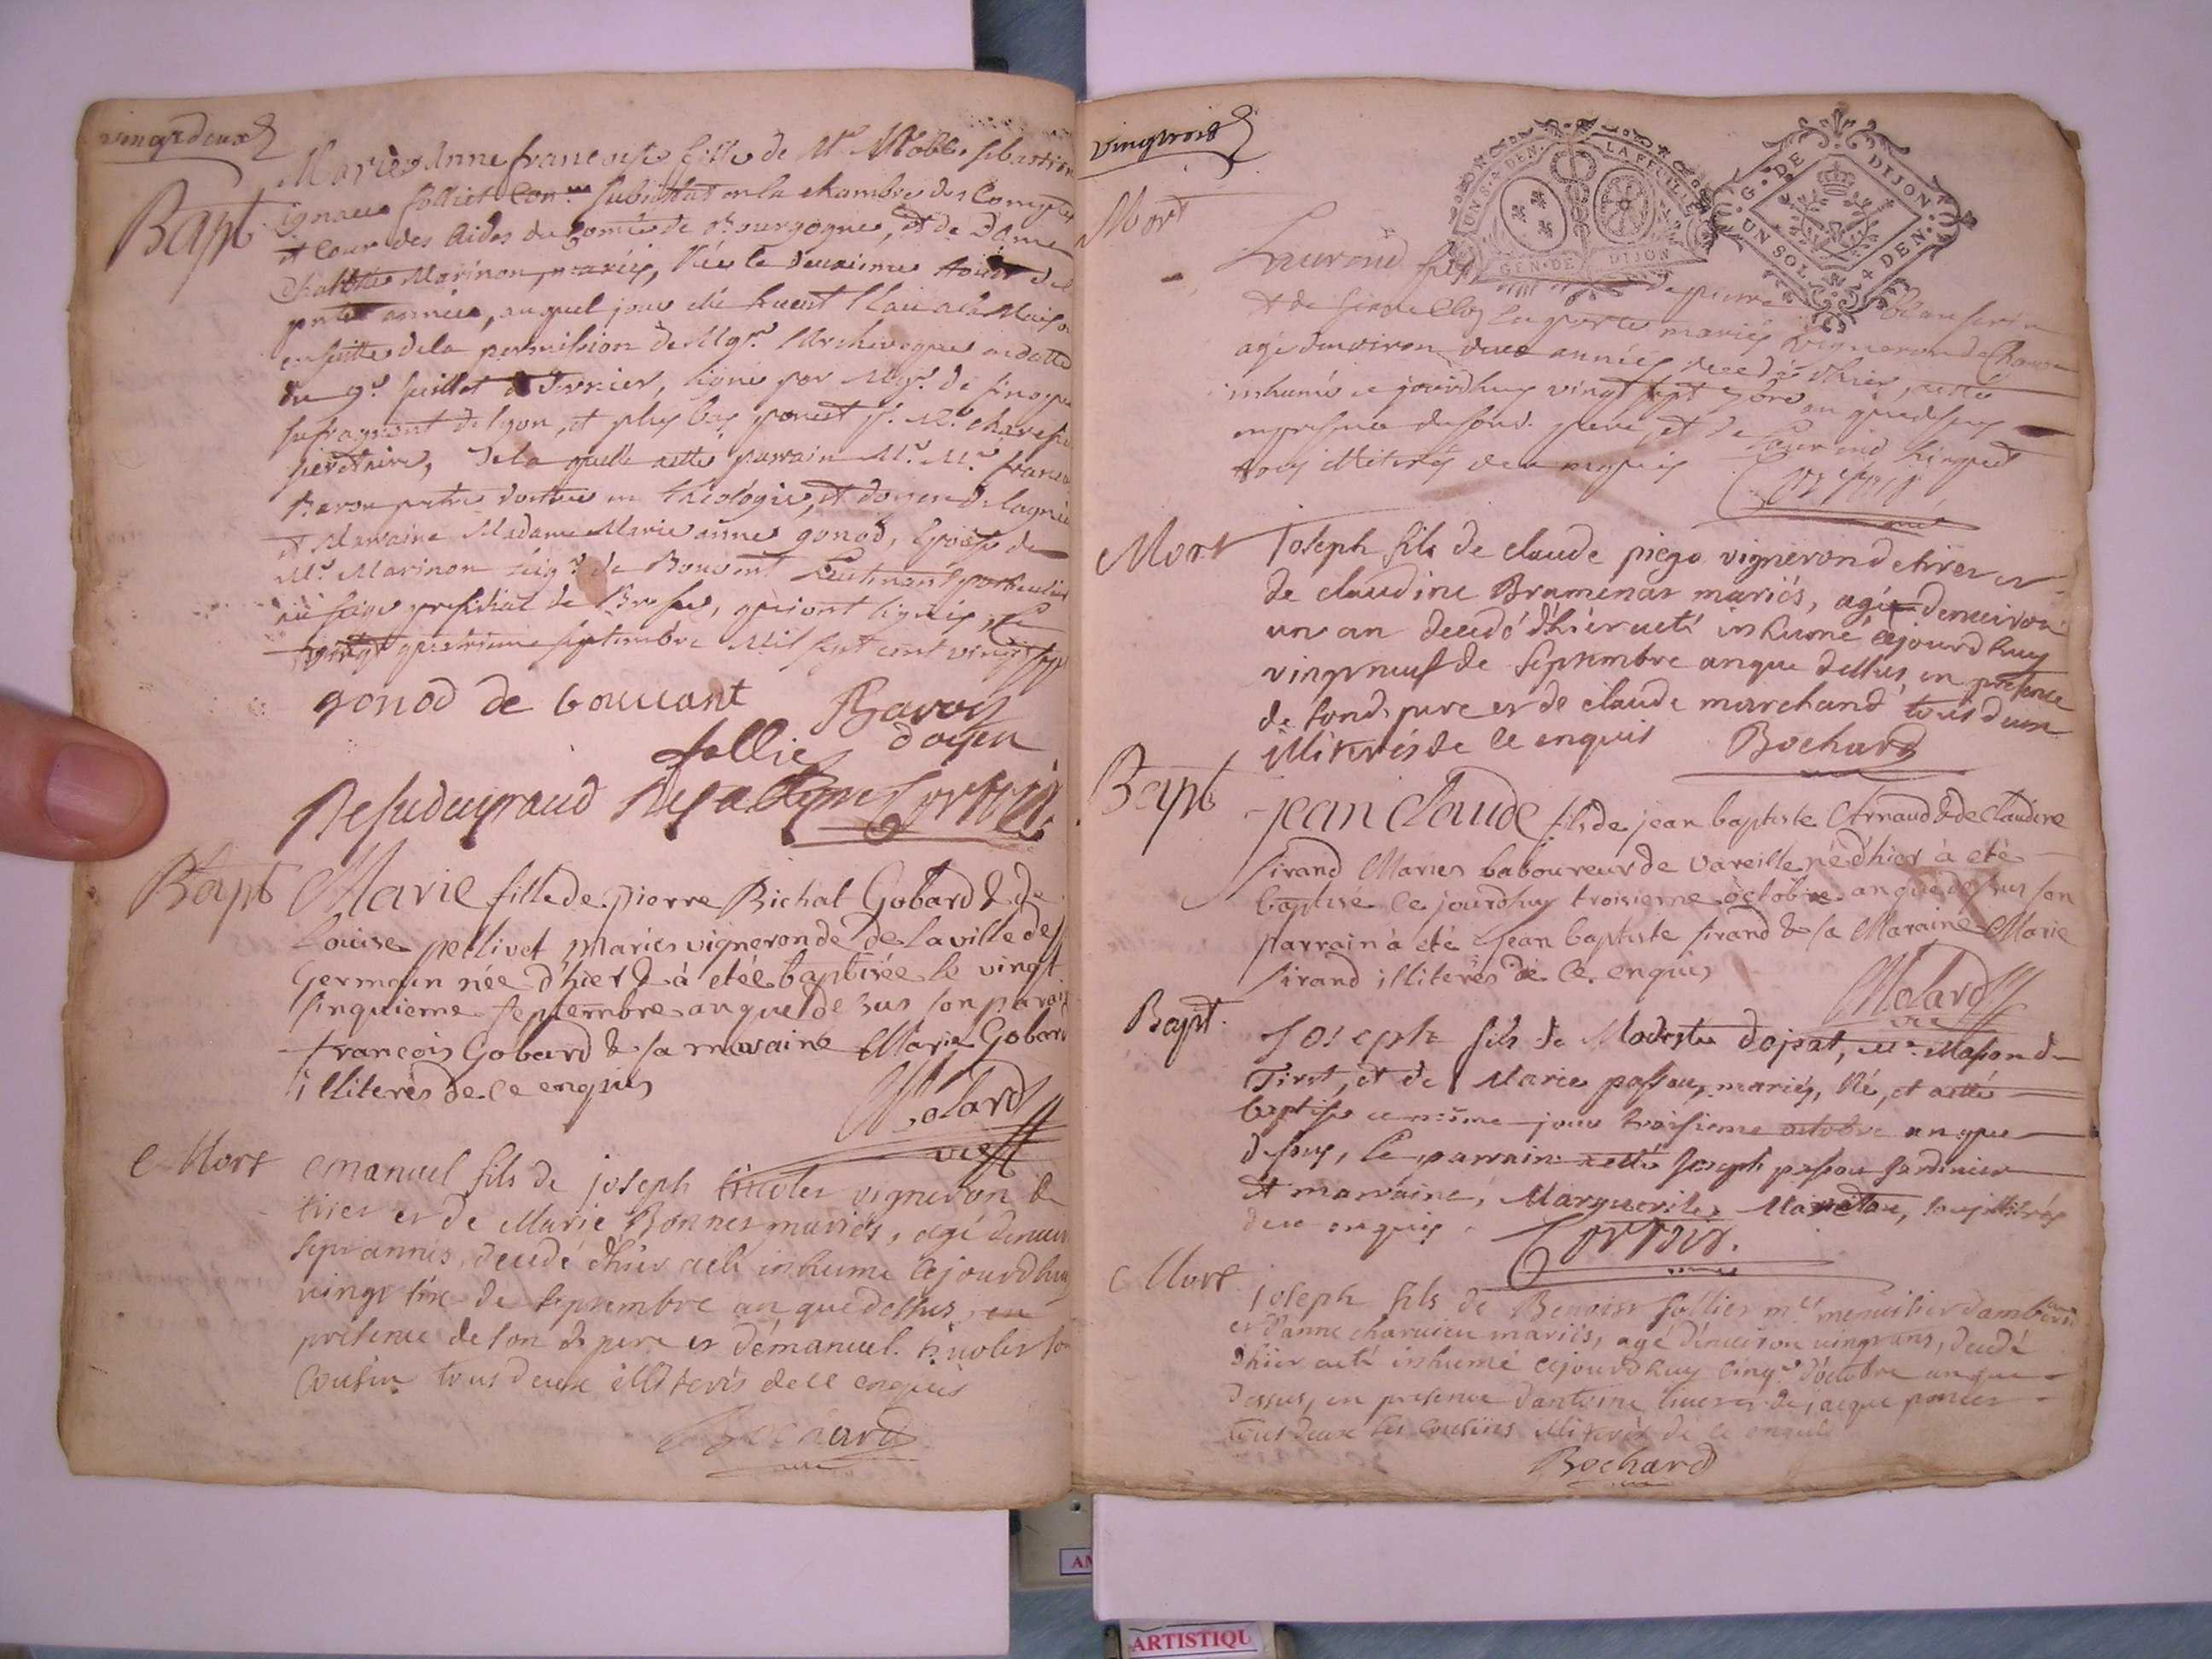 vingtdeux
Bapt
Marie Anne francoise fille de Mr Noble sebastien
ignace folliet Con.er substitut en la chambre des Comptes
et Cour des Aides du Comté de Bourgogne, et de Dame
Marinon mariés, Née le deuxieme Aoust de
pnte année, auquel jour elle fut
ensuitte de la permission de Mgr. l'Archeveque en datte
du 9e juillet dernier, signé par Mgr. de sinope
sufragant de lyon, et plus bas
secretaire, de la quelle a etté parrain Mr. Mr. francois
Bavoy pretre docteur en théologie, et doyen de lagnieu
et Marraine Madame Marie anne gonod, epouse de
Mr. Marinon seigr. de Bouvent Lieutenant particulier
au siege presidial de Bresse, qui ont signés, le
vingt quatrieme septembre Mil sept cent vingt sept
gonod de bouuant Bavoy
doyen
folliet
Bapt
Marie fille de pierre Bichat Gobard & de
Louise petlivet mariés vigneron de de la ville de st
Germain née d'hier & à etéé baptisée le vingt
sinquieme septembre an que de sus son parain
francois Gobard & sa maraine Marie Gobard
illiterés de ce enquis
Molard
vic
Mort
emanuel fils de joseph tinolet vigneron de
tiret et de Marie Bonnet mariés, agé denuiron
sept annés, decedé d'hier a eté inhumé cejourdhuy
vingt six de septembre an que dessus, en
présence de son d. pere et démanuel tinolet son
cousin tous deux illiterés de ce enquis
Bochard
vingtrois
Mort
UN S. 4 DEN. LA FEUILLE
GEN. DE DIJON
G. DE DIJON
UN SOL 4 DEN.
Laurend fils de pierre
et de mariés vigneron de
agé denviron deux années decedé d'hier, a etté
inhumé ce jourdhuy vingt sept 7bre an que dessus
en presence de son d. pere, et de Laurend
tous illiterés de ce enquis
Cortois
Mort
Joseph fils de claude piego vigneron de tiret et
de claudine Bramenas mariés, agé denuiron
un an decedé d'hier a eté inhumé cejourdhuy
vingt neuf de septembre an que dessus, en présence
de son d. pere et de claude marchand tous deux
illiterés de ce enquis Bochard
Bapt
jean Claude fils de jean baptiste Arnaud & de Claudine
sirand Mariés laboureur de vareille né d'hier à eté
baptisé ce jourdhuy troisieme octobre an que dessus son
parrain à eté jean baptiste sirand & sa Maraine Marie
sirand illiterés de ce enquis
Molard
vic
Bapt.
Joseph fils de Modeste dojat, Mr. Masson de
Tiret, et de Marie passou, mariés, Né, et a etté
baptisé ce mesme jour troisieme octobre an que
dessus, le parrain a etté Joseph passou jardinier
et marraine, Marguerite Mariton, tous illitérés
de ce enquis. Cortois.
Mort
joseph fils de Benoist follier mtre menuisier dambournay
et d'anne charuieu mariés, agé dénuiron vingt ans, decedé
d'hier a eté inhumé cejourdhuy cinqe d'octobre an que
dessus, en présence dantoine liuet et de jacque poncet
tous deux ses cousins illiterés de ce enquis
Bochard
ARTISTIQU